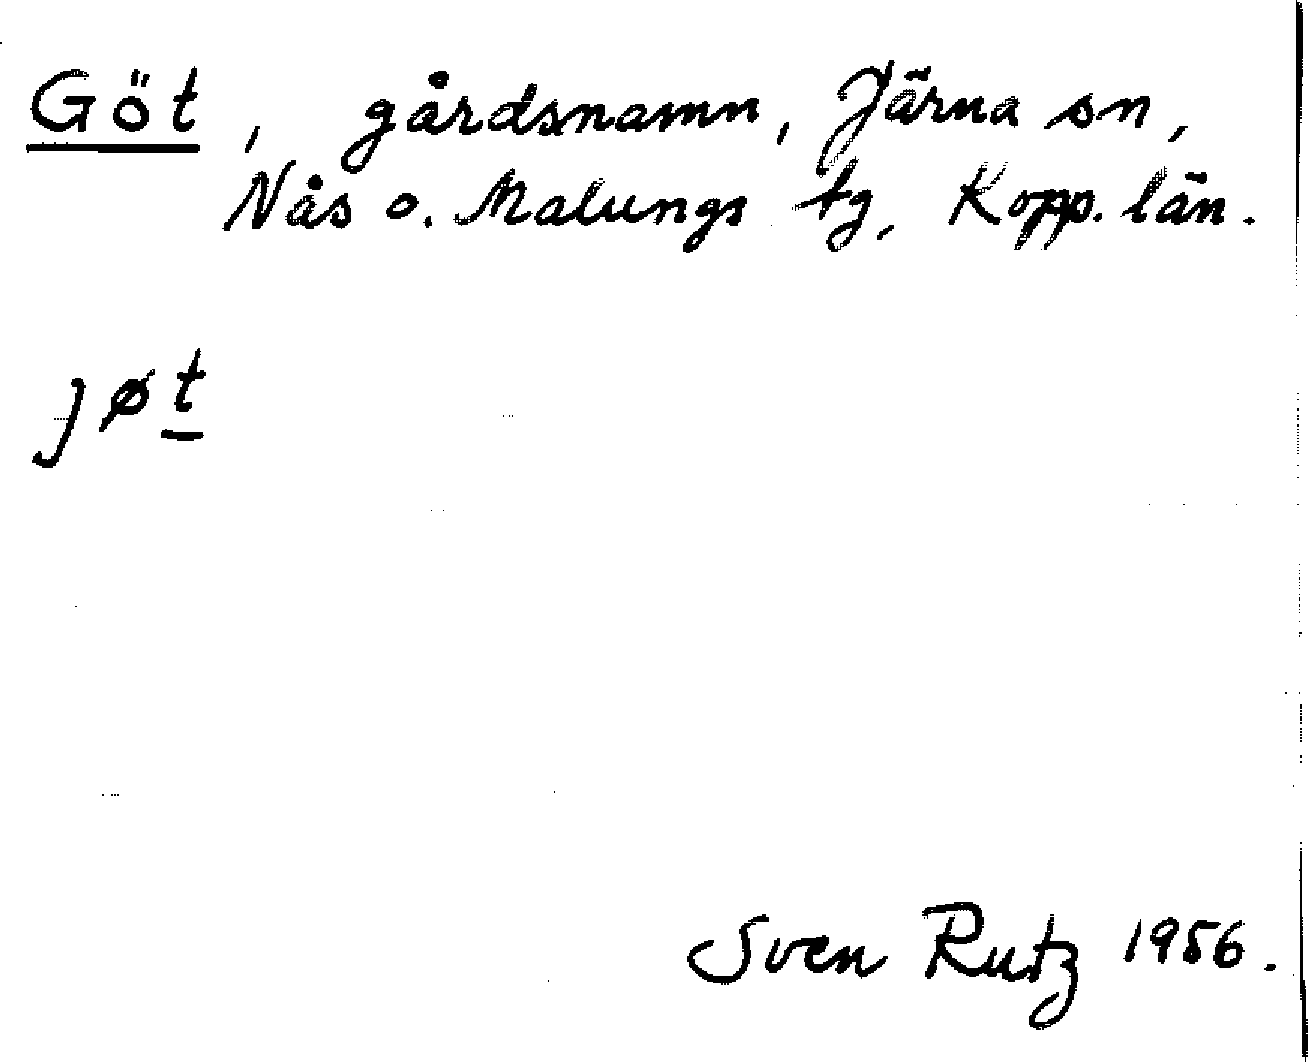 Göt, gårdsnamn, Järna sn,
Nås o. Malungs tg, Kopp. län.
jøt
Sven Rutz 1956.